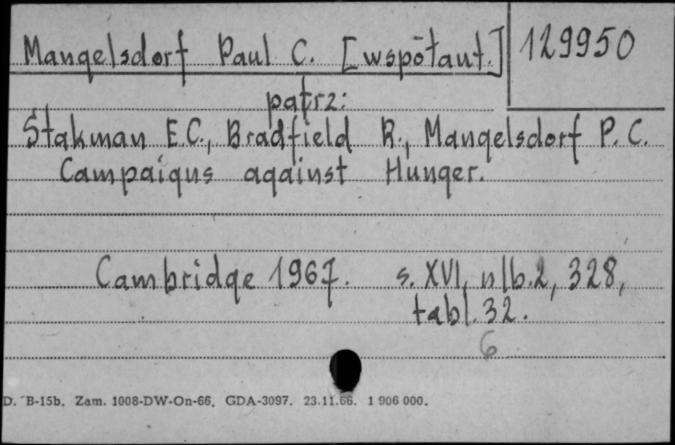 Mangelsdorf Paul C. [współaut.] 129950
patrz:
Stakman E.C., Bradfield R., Mangelsdorf P.C.
Campaigns against Hunger.
Cambridge 1967. s. XVI, nlb. 2, 328,
tabl. 32.
6
D. B-15b. Zam. 1008-DW-On-66. GDA-3097. 23.11.66. 1 906 000.